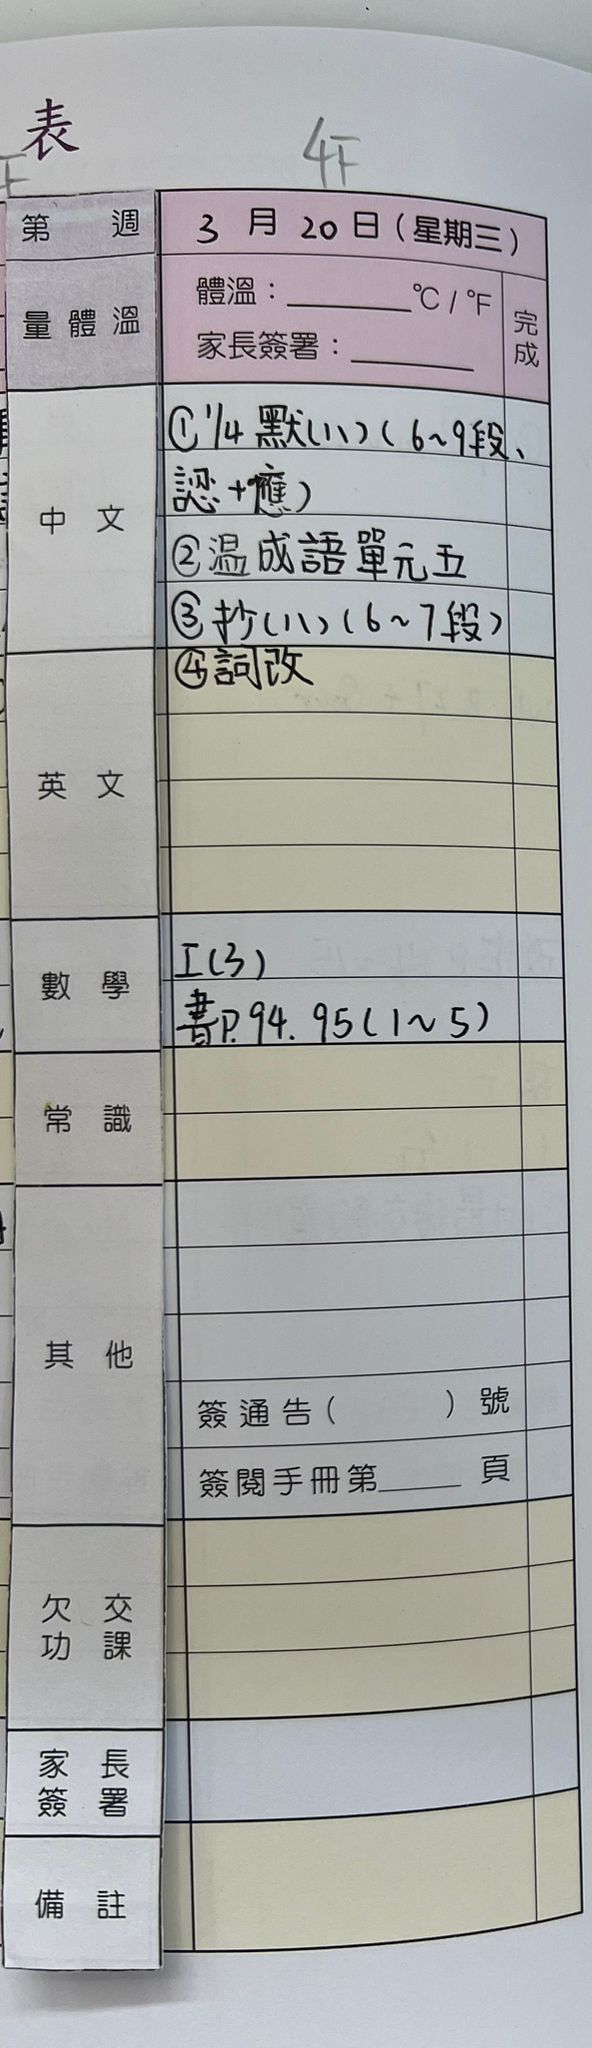 表
4F
第 週
3 月 20 日 (星期三)
量體溫
體溫：______°C / °F
家長簽署：______
完成
中文
① 1/4 默(八)(6~9段、
認+應)
② 温成語單元五
③ 抄(八)(6~7段)
④ 詞改
英文
數學
I(3)
書P.94. 95(1~5)
常識
其他
簽通告( ) 號
簽閱手冊第____ 頁
欠交
功課
家長
簽署
備註